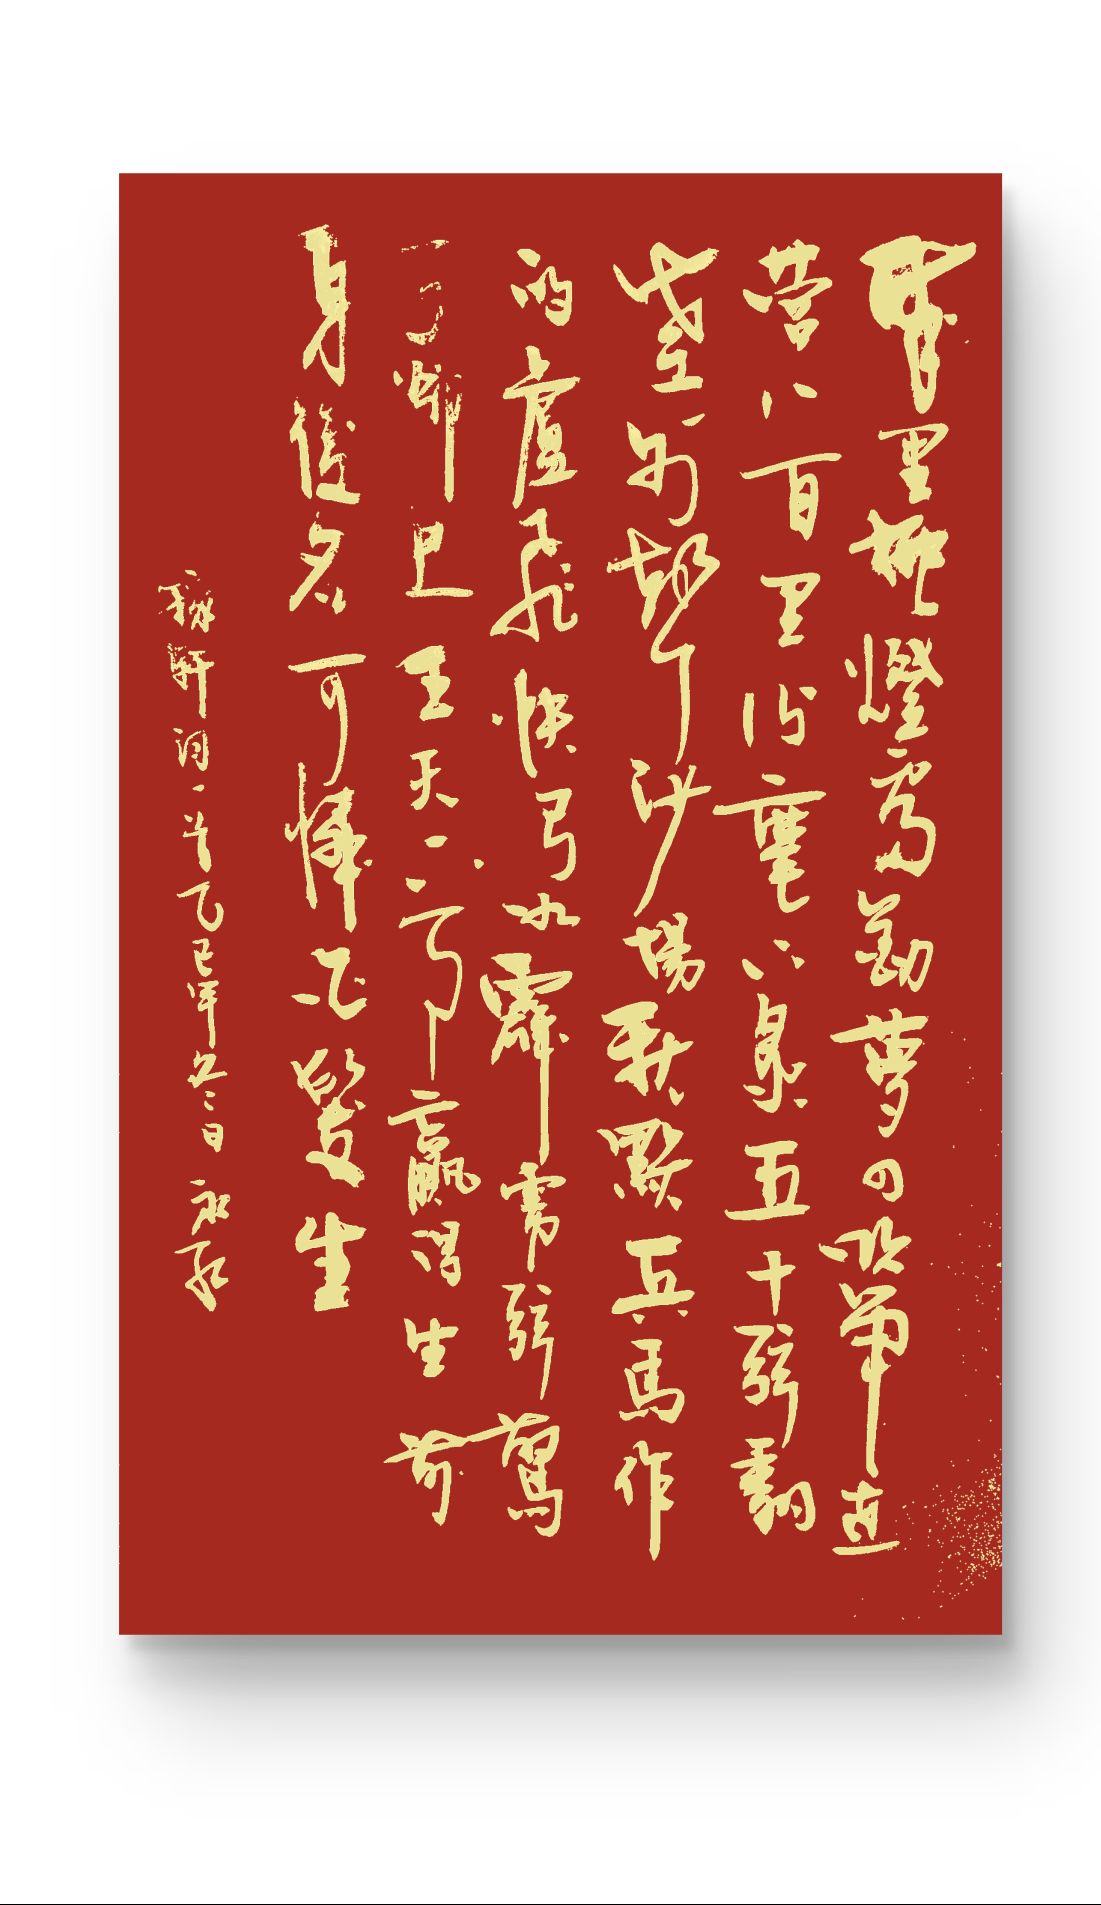 醉里挑燈看劍夢回吹角連
营八百里分麾下炙五十弦翻
塞外聲沙場秋點兵馬作
的盧飛快弓如霹靂弦驚
了却君王天下事贏得生前
身後名可憐白髮生
稼軒詞一首乙巳年 日 永